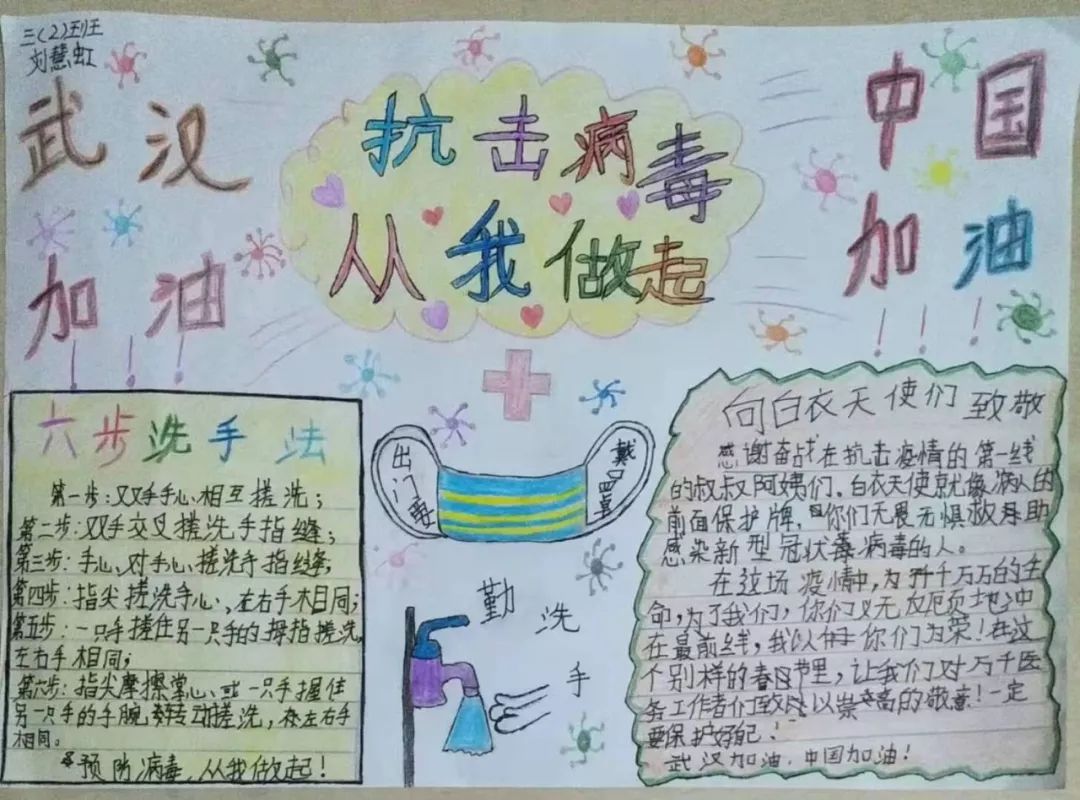 三(2)班
刘慧虹
武汉
加油!!!
抗击病毒
从我做起
中国
加油!!!
六步洗手法
第一步:双手手心相互搓洗;
第二步:双手交叉搓洗手指缝;
第三步:手心对手心搓洗手指缝;
第四步:指尖搓洗手心、左右手相同;
第五步:一只手握住另一只手的拇指搓洗,
左右手相同;
第六步:指尖摩擦掌心、或一只手握住
另一只手的手腕转动搓洗,左右手
相同。
预防病毒,从我做起!
出门要
戴口罩
勤洗手
向白衣天使们致敬
感谢奋战在抗击疫情的第一线
的叔叔阿姨们。白衣天使就像病人的
前面保护牌,你们无畏无惧救助
感染新型冠状病毒的人。
在这场疫情中,为了千千万万的生
命,为了我们,你们义无反顾地冲
在最前线,我以你们为荣!在这
个别样的春节里,让我们对万千医
务工作者们致以崇高的敬意!一定
要保护好自己!
武汉加油,中国加油!